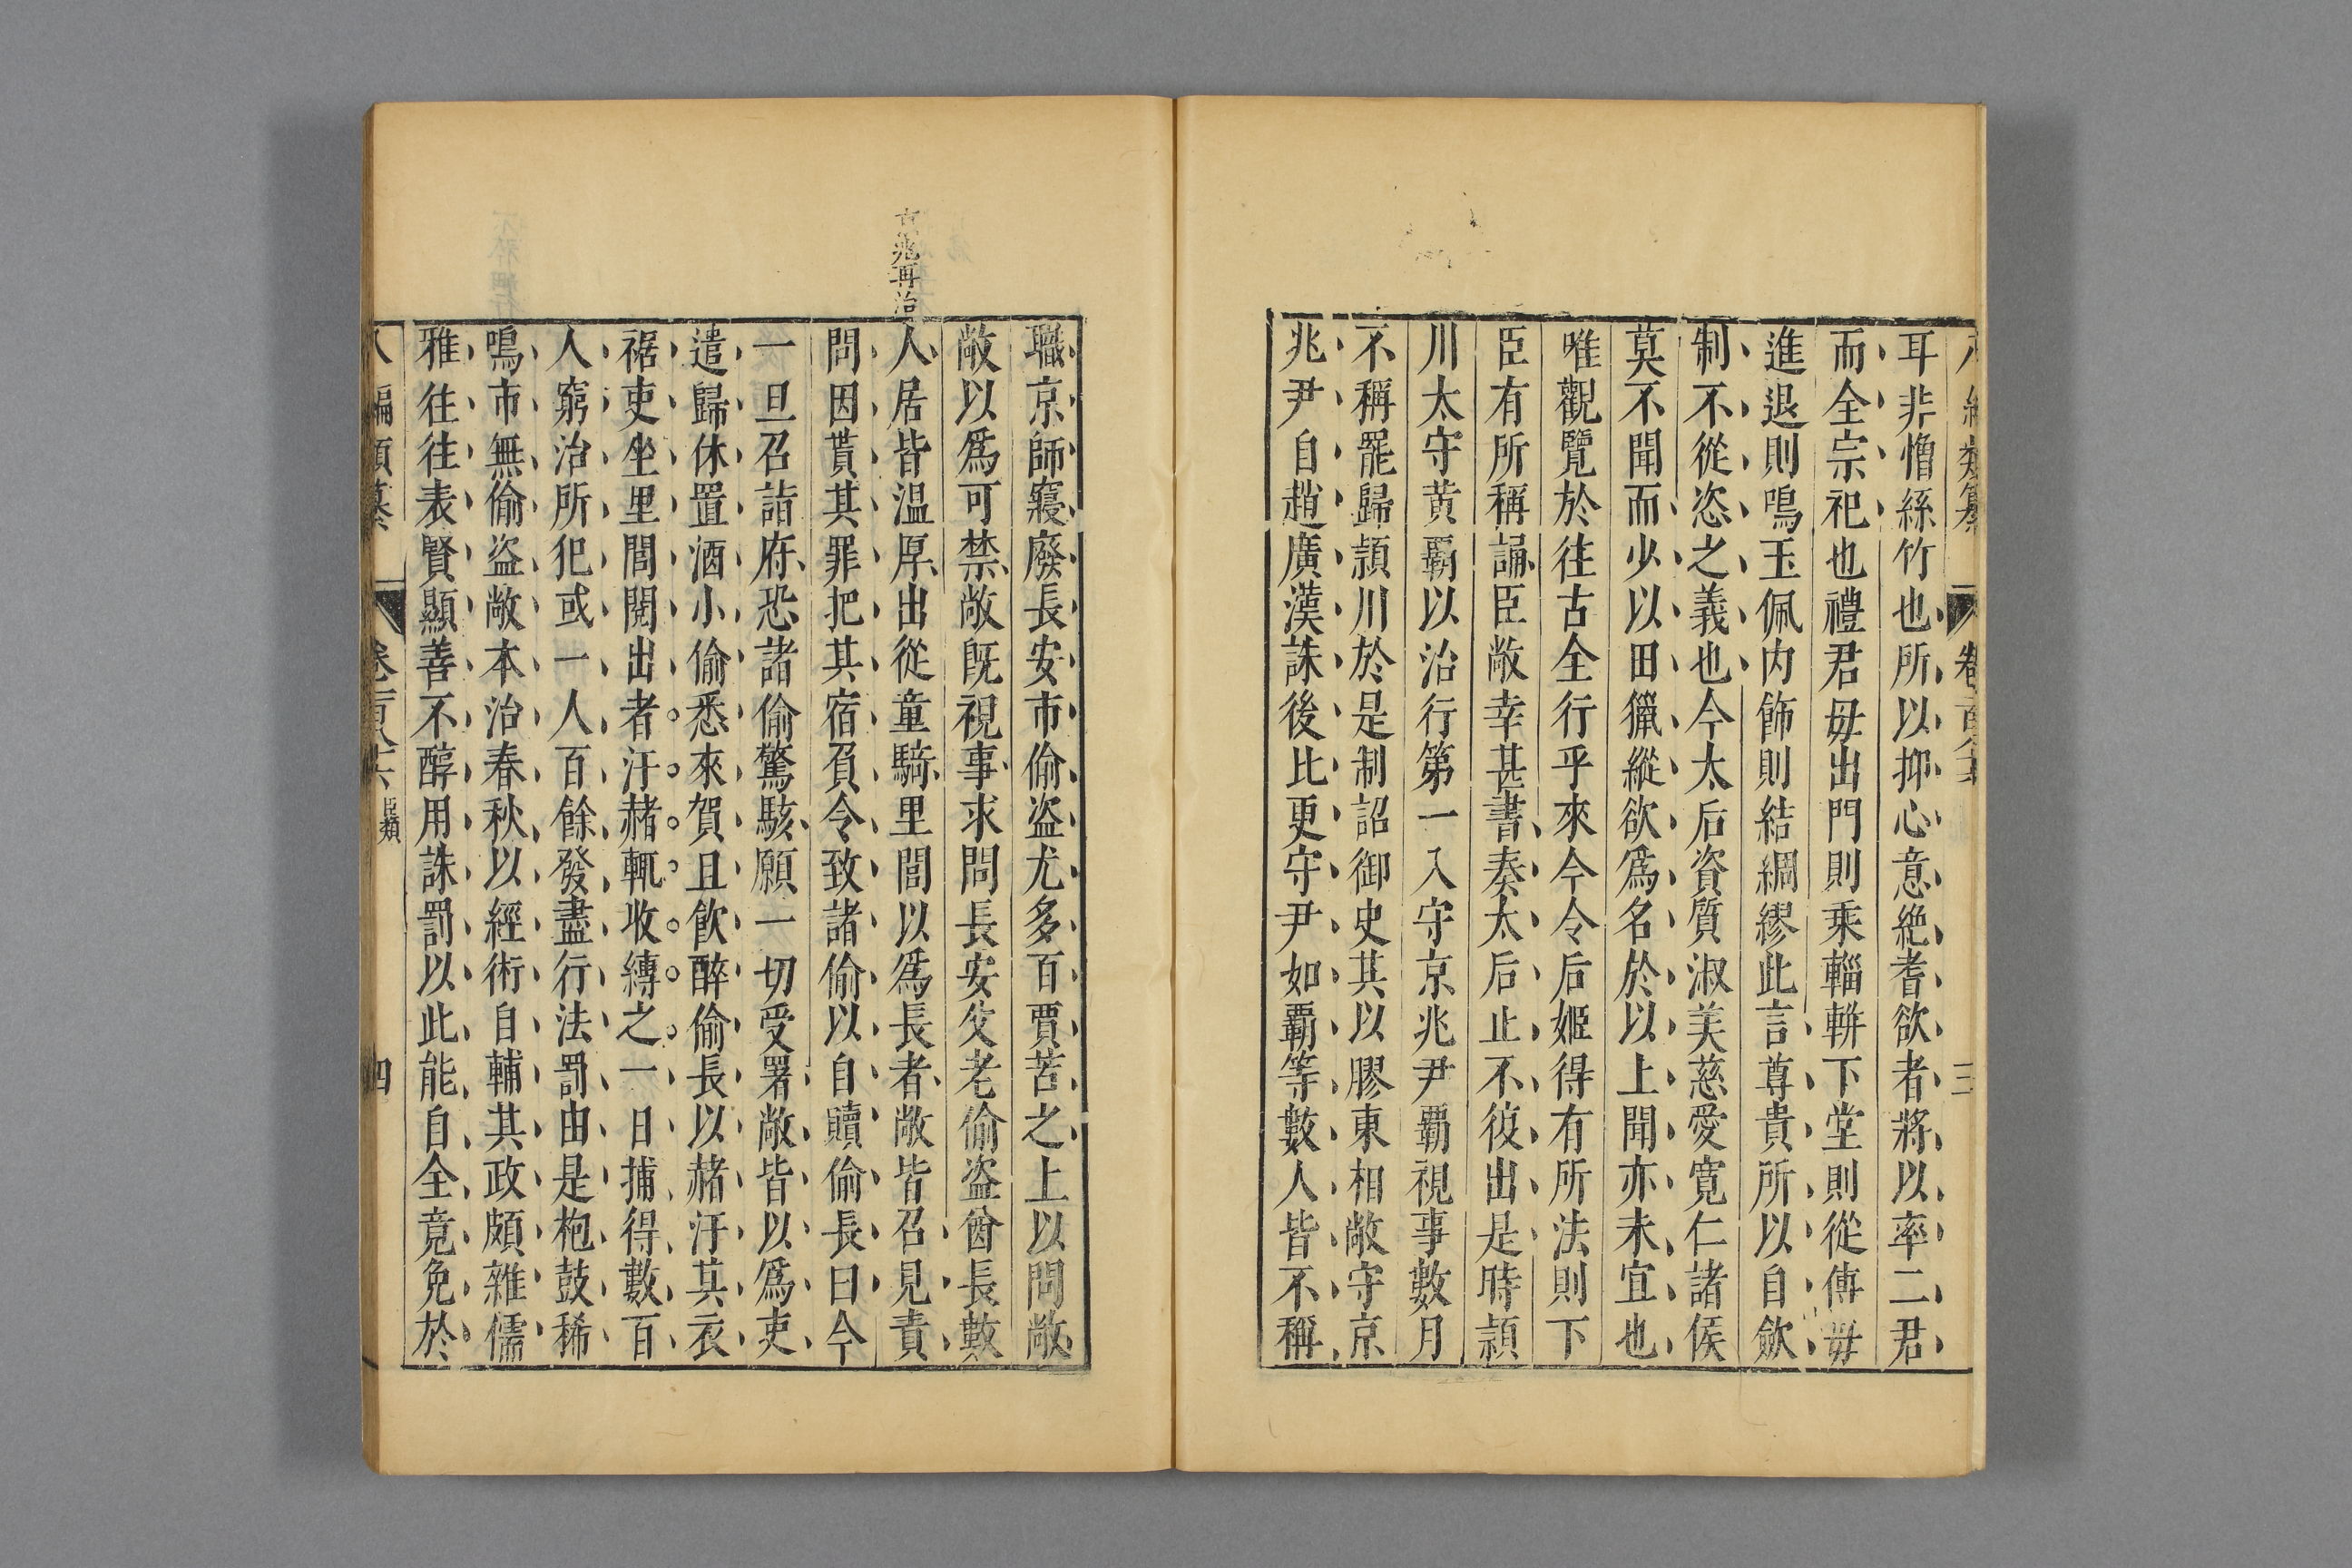 耳非憎絲竹也所以抑心意絶耆欲者將以率二君
而全宗祀也禮君毋出門則乘輜軿下堂則從傅毋
進退則鳴玉佩内飾則結綢繆此言尊貴所以自斂
制不從恣之義也今太后資質淑美慈愛寬仁諸侯
莫不聞而少以田獵縱欲爲名於以上聞亦未宜也
唯觀覽於往古全行乎來今令后姬得有所法則下
臣有所稱誦臣敞幸甚書奏太后止不復出是時潁
川太守黃霸以治行第一入守京兆尹霸視事數月
不稱罷歸潁川於是制詔御史其以膠東相敞守京
兆尹自趙廣漢誅後比更守尹如霸等數人皆不稱
職京師寖廢長安市偷盜尤多百賈苦之上以問敞
敞以爲可禁敞既視事求問長安父老偷盜酋長數
京兆再治
人居皆温厚出從童騎里閭以爲長者敞皆召見責
問因貰其罪把其宿負令致諸偷以自贖偷長曰今
一旦召詣府恐諸偷驚駭願一切受署敞皆以爲吏
遣歸休置酒小偷悉來賀且飲醉偷長以赭汙其衣
裾吏坐里閭閱出者汙赭輒收縛之一日捕得數百
人窮治所犯或一人百餘發盡行法罰由是枹鼓稀
鳴市無偷盜敞本治春秋以經術自輔其政頗雜儒
雅往往表賢顯善不醇用誅罰以此能自全竟免於
八編類纂 卷二百八六 臣類 四